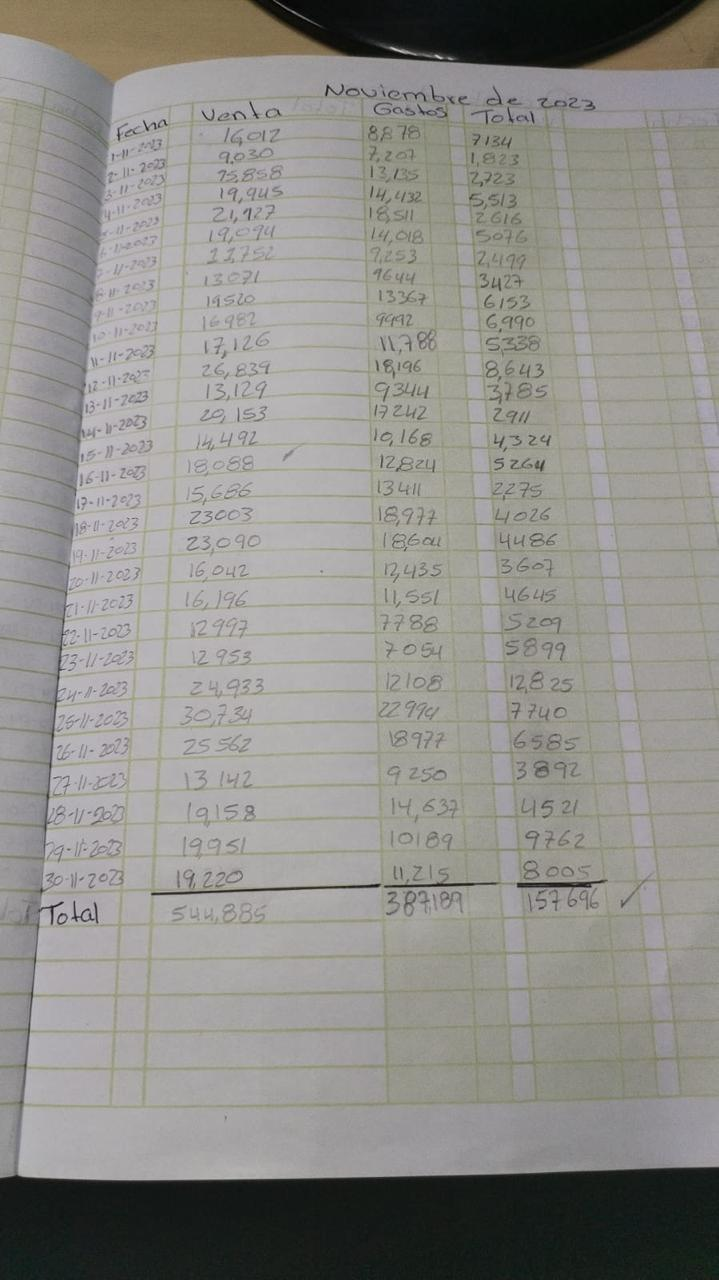 Noviembre de 2023
Fecha Venta Gastos Total
1-11-2023 16,012 8,878 7134
2-11-2023 9,030 7,207 1,823
3-11-2023 15,858 13,135 2,723
4-11-2023 19,945 14,432 5,513
5-11-2023 21,127 18,511 2616
6-11-2023 19,094 14,018 5076
7-11-2023 11,752 9,253 2,499
8-11-2023 13071 9644 3427
9-11-2023 19520 13367 6153
10-11-2023 16982 9992 6,990
11-11-2023 17,126 11,788 5,338
12-11-2023 26,839 18,196 8,643
13-11-2023 13,129 9344 3,785
14-11-2023 20,153 17242 2911
15-11-2023 14,492 10,168 4,324
16-11-2023 18,088 12,824 5264
17-11-2023 15,686 13411 2275
18-11-2023 23003 18,977 4026
19-11-2023 23,090 18,604 4486
20-11-2023 16,042 12,435 3607
21-11-2023 16,196 11,551 4645
22-11-2023 12997 7788 5209
23-11-2023 12953 7054 5899
24-11-2023 24,933 12108 12,825
25-11-2023 30,734 22994 7740
26-11-2023 25562 18977 6585
27-11-2023 13142 9250 3892
28-11-2023 19,158 14,637 4521
29-11-2023 19,951 10189 9762
30-11-2023 19,220 11,215 8005
Total 544,885 387,189 157696